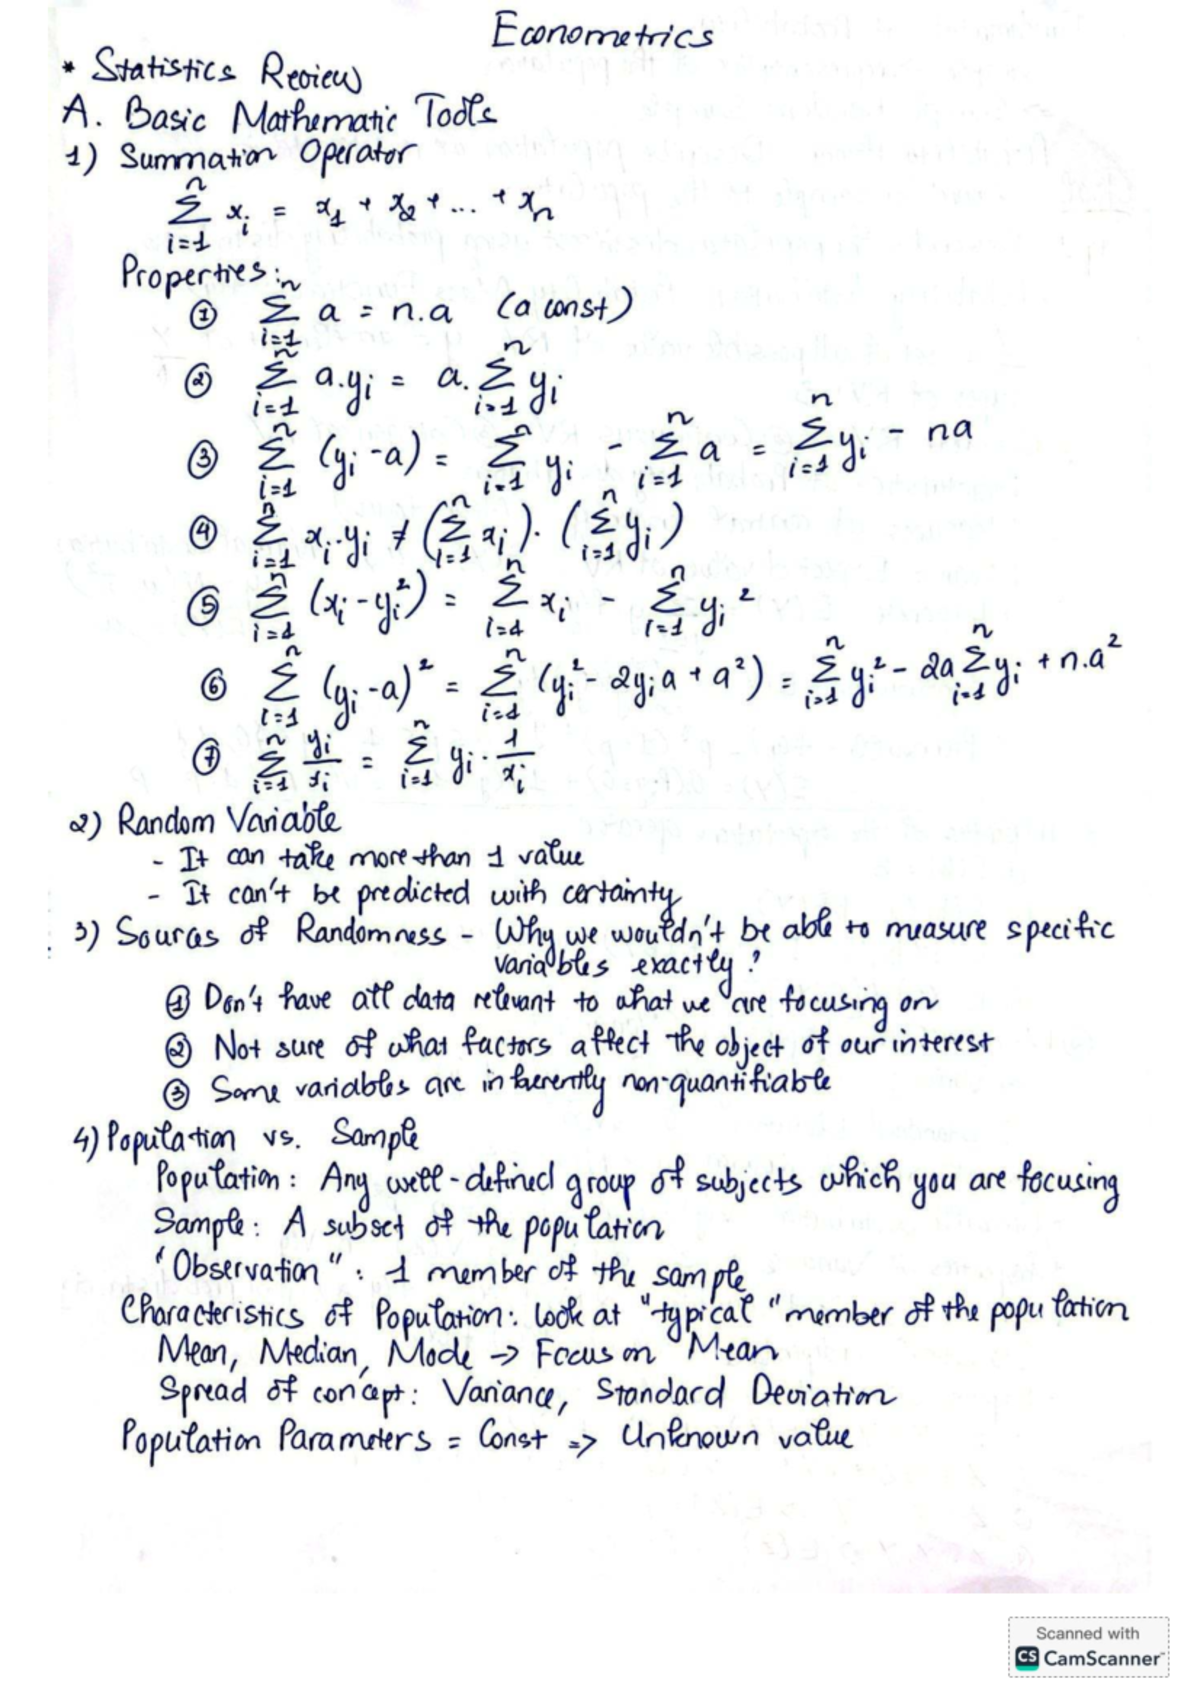 Econometrics
* Statistics Review
A. Basic Mathematic Tools
1) Summation Operator
∑_{i=1}^{n} x_i = x_1 + x_2 + ... + x_n
Properties:
① ∑_{i=1}^{n} a = n.a (a const)
② ∑_{i=1}^{n} a.y_i = a. ∑_{i=1}^{n} y_i
③ ∑_{i=1}^{n} (y_i - a) = ∑_{i=1}^{n} y_i - ∑_{i=1}^{n} a = ∑_{i=1}^{n} y_i - na
④ ∑_{i=1}^{n} x_i.y_i ≠ (∑_{i=1}^{n} x_i). (∑_{i=1}^{n} y_i)
⑤ ∑_{i=1}^{n} (x_i - y_i^2) = ∑_{i=1}^{n} x_i - ∑_{i=1}^{n} y_i^2
⑥ ∑_{i=1}^{n} (y_i - a)^2 = ∑_{i=1}^{n} (y_i^2 - 2y_i a + a^2) = ∑_{i=1}^{n} y_i^2 - 2a ∑_{i=1}^{n} y_i + n.a^2
⑦ ∑_{i=1}^{n} y_i/x_i = ∑_{i=1}^{n} y_i . 1/x_i
2) Random Variable
- It can take more than 1 value
- It can't be predicted with certainty
3) Sources of Randomness - Why we wouldn't be able to measure specific
variables exactly?
① Don't have all data relevant to what we are focusing on
② Not sure of what factors affect the object of our interest
③ Some variables are inherently non-quantifiable
4) Population vs. Sample
Population: Any well-defined group of subjects which you are focusing
Sample: A subset of the population
"Observation": 1 member of the sample
Characteristics of Population: look at "typical" member of the population
Mean, Median, Mode -> Focus on Mean
Spread of concept: Variance, Standard Deviation
Population Parameters = Const => Unknown value
Scanned with
CS CamScanner